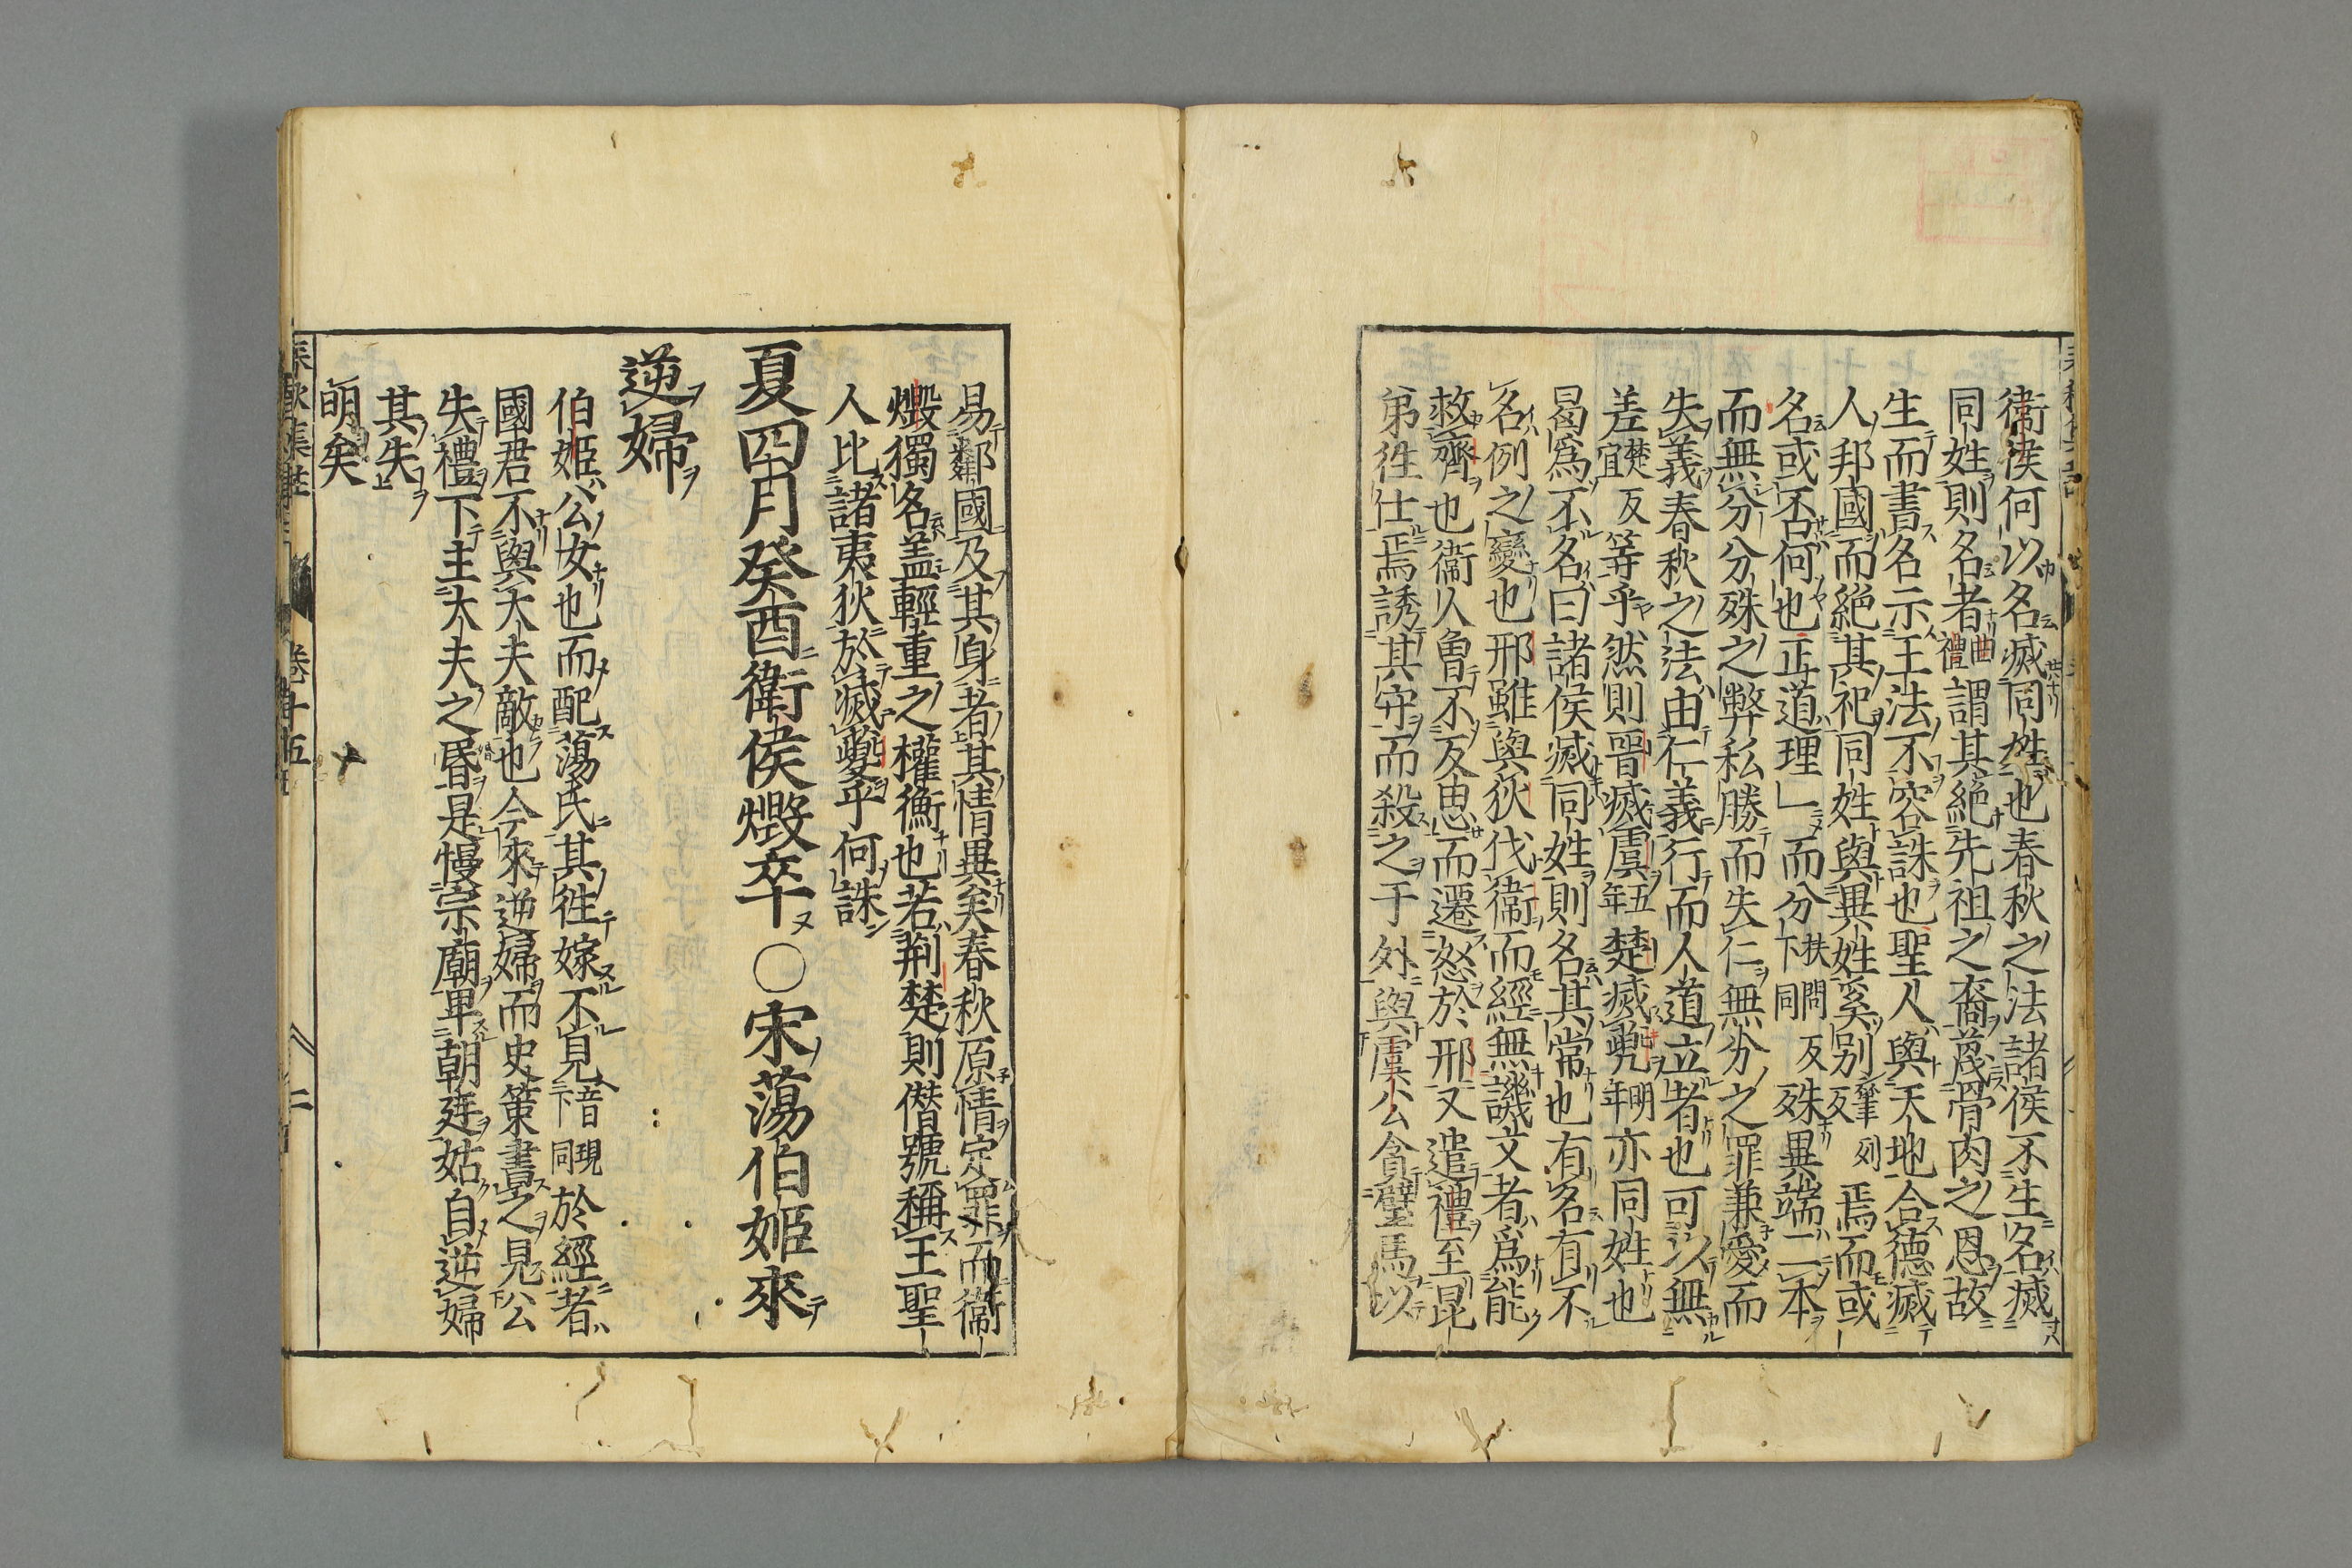 衞侯何以名滅同姓也春秋之法諸侯不生名滅
同姓則名者曲禮謂其絶先祖之裔蔑骨肉之恩故
生而書名示王法不容誅也聖人與天地合德滅
人邦國而絶其祀同姓與異姓奚别筆列反焉而或
名或否何也正道理而分扶問反下同殊異端二本
而無分分殊之弊私勝而失仁無分之罪兼愛而
失義春秋之法由仁義行而人道立者也可以無
差楚宜反等乎然則晋滅虞五年楚滅夔明年亦同姓也
曷爲不名曰諸侯滅同姓則名其常也有名有不
名例之變也邢雖與狄伐衞而經無譏文者爲能
救齊也衞人魯不反思而遷怒於邢又遣禮至昆
弟徃仕焉誘其守而殺之于外與虞公貪璧馬以
易鄰國及其身者其情異矣春秋原情定罪而衞
燬獨名盖輕重之權衡也若荆楚則僣號稱王聖
人比諸夷狄於滅夔乎何誅
夏四月癸酉衞侯燬卒〇宋蕩伯姬來
逆婦
伯姬公女也而配蕩氏其徃嫁不見音現下同於經者
國君不與大夫敵也今來逆婦而史策書之見公
失禮下主大夫之昏是慢宗廟卑朝廷姑自逆婦
其失
明矣
春秋集註 卷十五 二